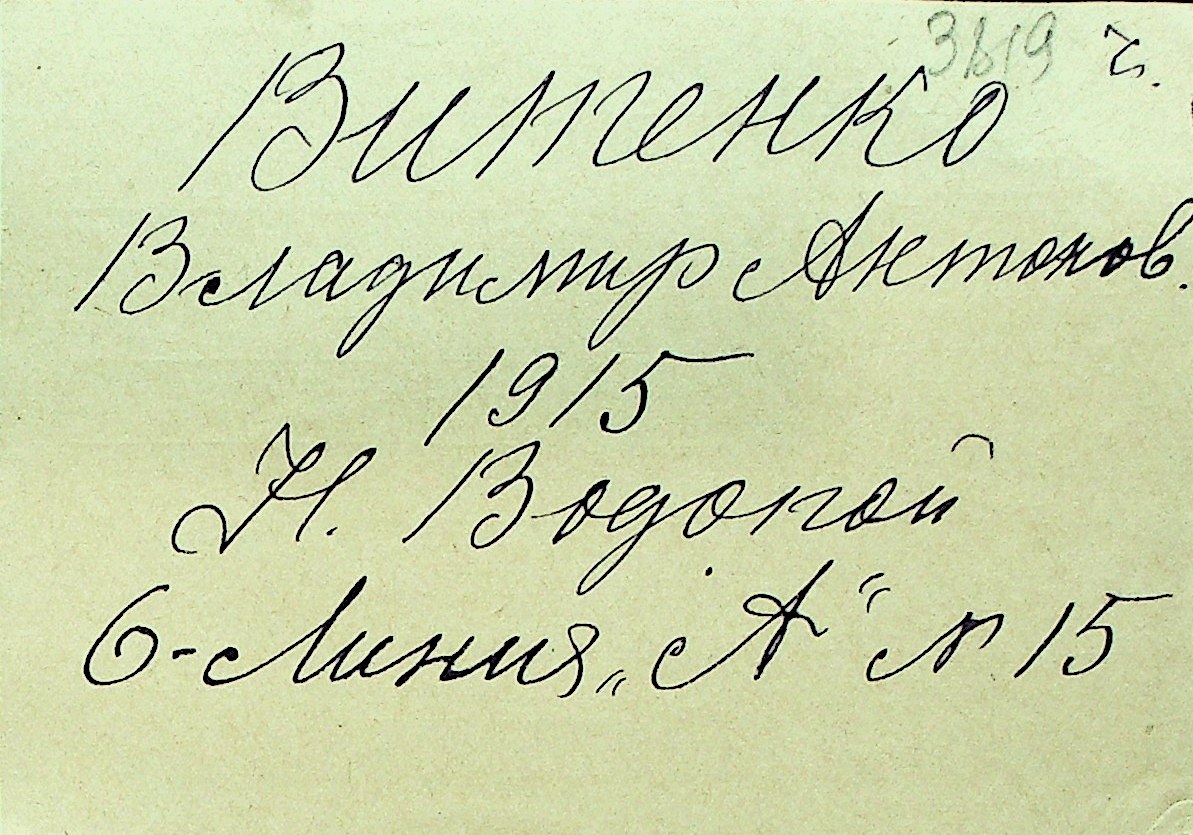 3819 г.
Витенко
Владимир Антонов.
1915
Н. Водопой
6-Линия „А“ № 15